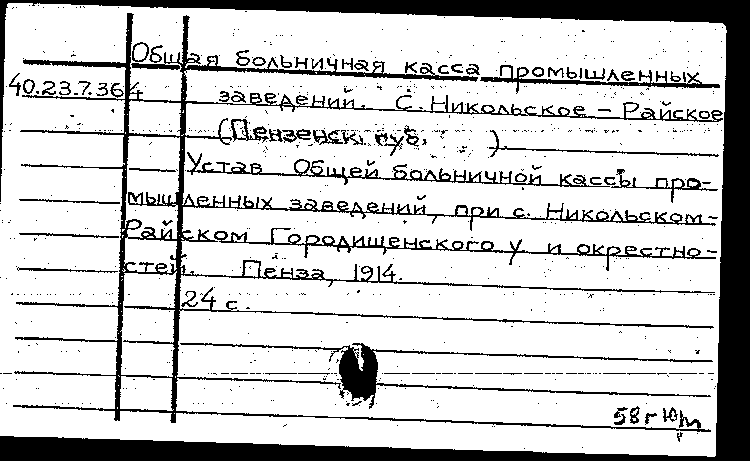 Общая больничная касса промышленных
40.23.7.364 заведений. С. Никольское – Райское
(Пензенск. губ. ).
Устав Общей больничной кассы про-
мышленных заведений, при с. Никольском-
Райском Городищенского у. и окрестно-
стей. Пенза, 1914.
24 с.
58г